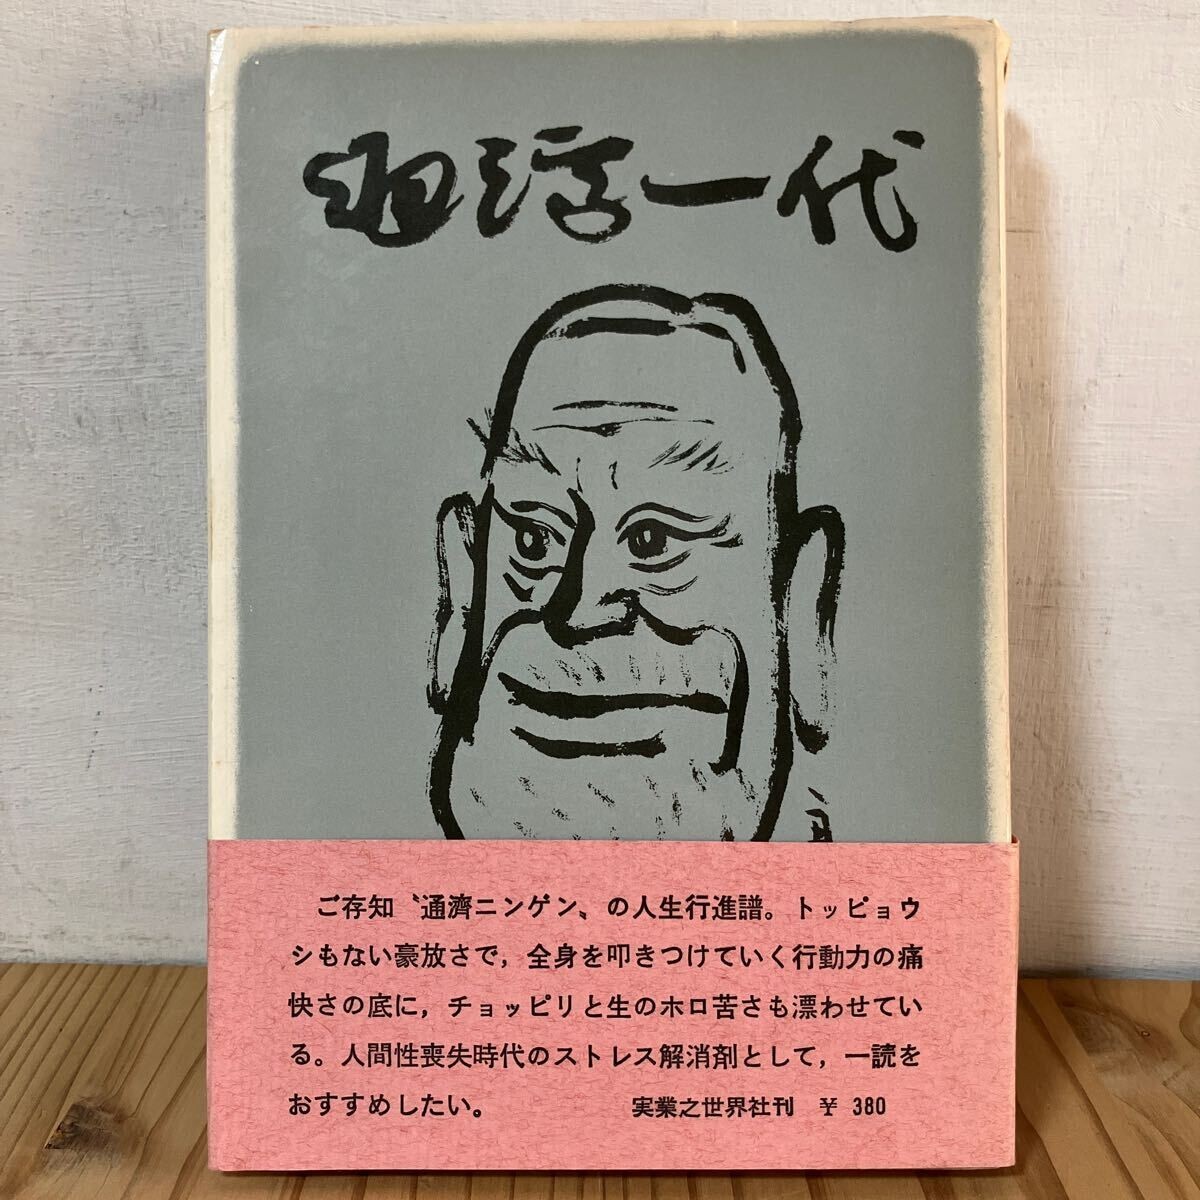 通済一代
ご存知〝通濟ニンゲン〟の人生行進譜。トッピョウ
シもない豪放さで，全身を叩きつけていく行動力の痛
快さの底に，チョッピリと生のホロ苦さも漂わせてい
る。人間性喪失時代のストレス解消剤として，一読を
おすすめしたい。 実業之世界社刊 ￥ 380